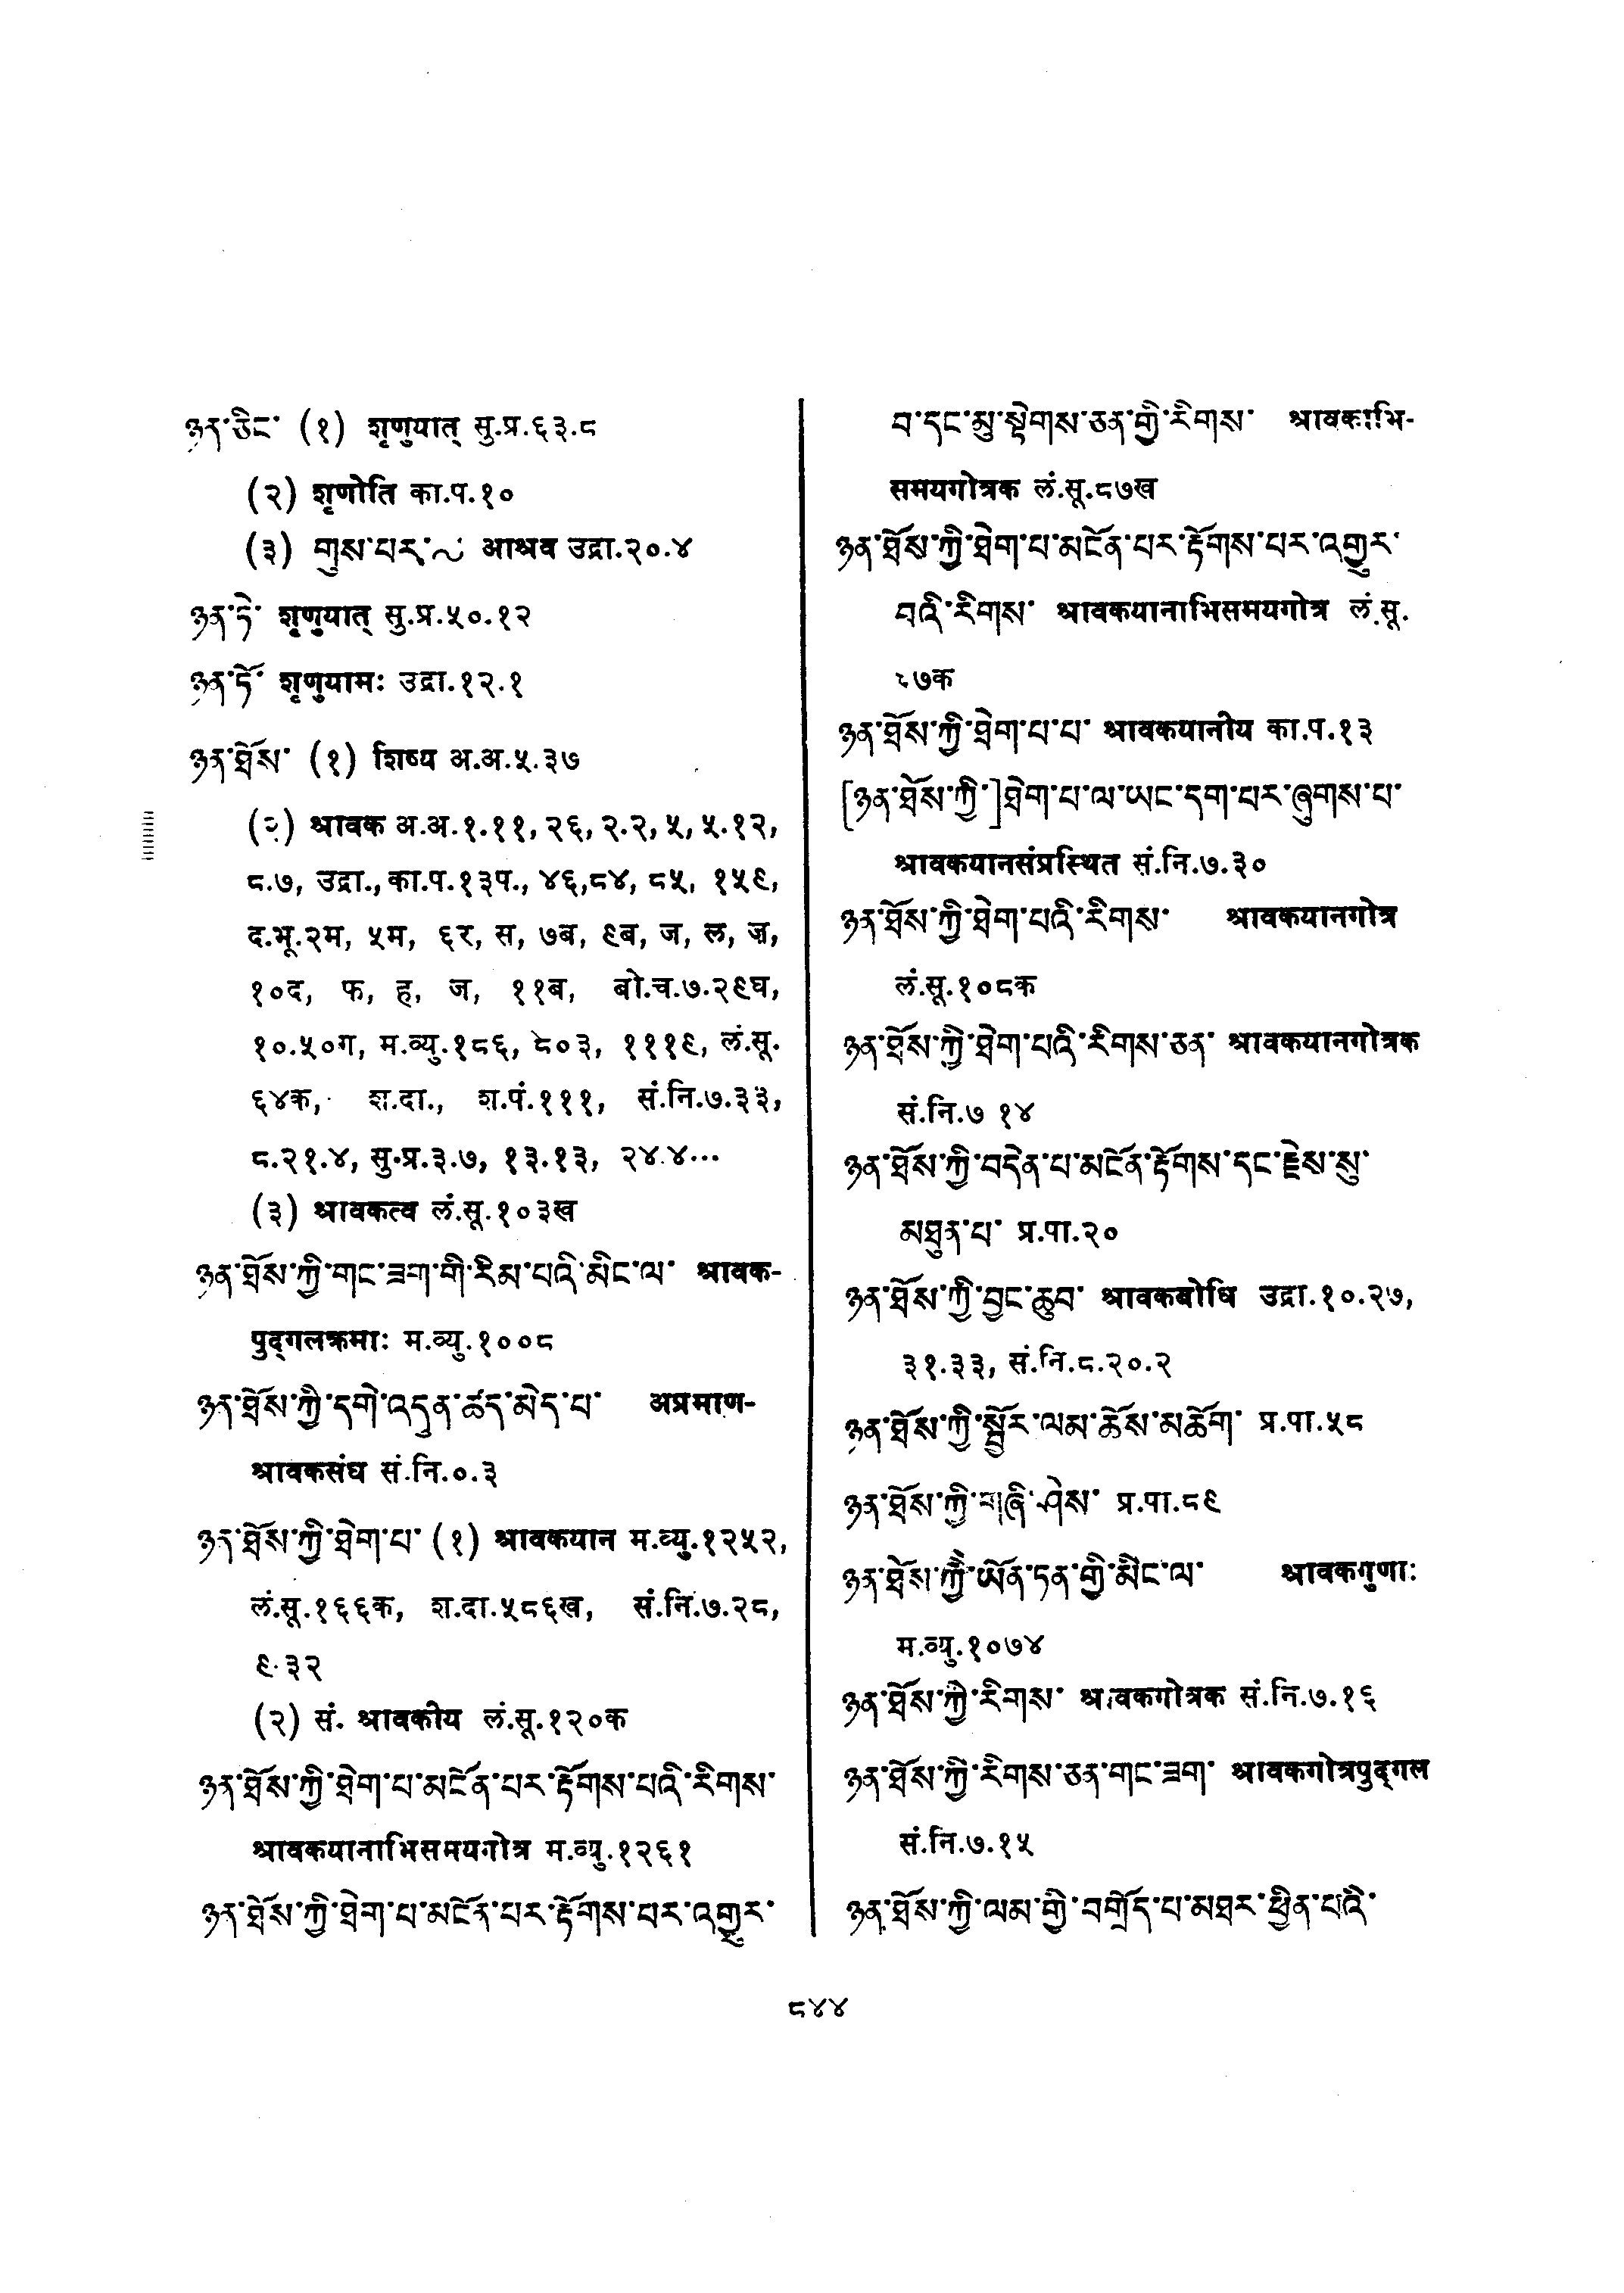 ཉན་ཅིང་ (१) शृणुयात् सु.प्र.६३.८
(२) शृणोति का.प.१०
(३) གུས་པར་~ आश्रव उद्रा.२०.४
ཉན་ཏེ་ शृणुयात् सु.प्र.५०.१२
ཉན་ཏོ་ शृणुयामः उद्रा.१२.१
ཉན་ཐོས་ (१) शिष्य अ.अ.५.३७
(२) श्रावक अ.अ.१.११, २६, २.२, ५, ५.१२,
८.७, उद्रा., का.प.१३प., ४६,८४, ८५, १५९,
द.भू.२म, ५म, ६र, स, ७ब, ९ब, ज, ल, ज,
१०द, फ, ह, ज, ११ब, बो.च.७.२९घ,
१०.५०ग, म.व्यु.१८६, ८०३, १११९, लं.सू.
६४क, श.दा., श.पं.१११, सं.नि.७.३३,
८.२१.४, सु.प्र.३.७, १३.१३, २४.४...
(३) श्रावकत्व लं.सू.१०३ख
ཉན་ཐོས་ཀྱི་གང་ཟག་གི་རིམ་པའི་མིང་ལ་ श्रावक-
पुद्गलक्रमाः म.व्यु.१००८
ཉན་ཐོས་ཀྱི་དགེ་འདུན་ཚད་མེད་པ་ अप्रमाण-
श्रावकसंघ सं.नि.०.३
ཉན་ཐོས་ཀྱི་ཐེག་པ་ (१) श्रावकयान म.व्यु.१२५२,
लं.सू.१६६क, श.दा.५८६ख, सं.नि.७.२८,
९.३२
(२) सं. श्रावकीय लं.सू.१२०क
ཉན་ཐོས་ཀྱི་ཐེག་པ་མངོན་པར་རྟོགས་པའི་རིགས་
श्रावकयानाभिसमयगोत्र म.व्यु.१२६१
ཉན་ཐོས་ཀྱི་ཐེག་པ་མངོན་པར་རྟོགས་པར་འགྱུར་
བ་དང་མུ་སྟེགས་ཅན་གྱི་རིགས་ श्रावकाभि-
समयगोत्रक लं.सू.८७ख
ཉན་ཐོས་ཀྱི་ཐེག་པ་མངོན་པར་རྟོགས་པར་འགྱུར་
བའི་རིགས་ श्रावकयानाभिसमयगोत्र लं.सू.
८७क
ཉན་ཐོས་ཀྱི་ཐེག་པ་པ་ श्रावकयानीय का.प.१३
[ཉན་ཐོས་ཀྱི་]ཐེག་པ་ལ་ཡང་དག་པར་ཞུགས་པ་
श्रावकयानसंप्रस्थित सं.नि.७.३०
ཉན་ཐོས་ཀྱི་ཐེག་པའི་རིགས་ श्रावकयानगोत्र
लं.सू.१०८क
ཉན་ཐོས་ཀྱི་ཐེག་པའི་རིགས་ཅན་ श्रावकयानगोत्रक
सं.नि.७ १४
ཉན་ཐོས་ཀྱི་བདེན་པ་མངོན་རྟོགས་དང་རྗེས་སུ་
མཐུན་པ་ प्र.पा.२०
ཉན་ཐོས་ཀྱི་བྱང་ཆུབ་ श्रावकबोधि उद्रा.१०.२७,
३१.३३, सं.नि.८.२०.२
ཉན་ཐོས་ཀྱི་སྦྱོར་ལམ་ཆོས་མཆོག་ प्र.पा.५८
ཉན་ཐོས་ཀྱི་གཞི་ཤེས་ प्र.पा.८९
ཉན་ཐོས་ཀྱི་ཡོན་ཏན་གྱི་མིང་ལ་ श्रावकगुणाः
म.व्यु.१०७४
ཉན་ཐོས་ཀྱི་རིགས་ श्रावकगोत्रक सं.नि.७.१६
ཉན་ཐོས་ཀྱི་རིགས་ཅན་གང་ཟག་ श्रावकगोत्रपुद्गल
सं.नि.७.१५
ཉན་ཐོས་ཀྱི་ལམ་གྱི་བགྲོད་པ་མཐར་ཕྱིན་པའི་
८४४